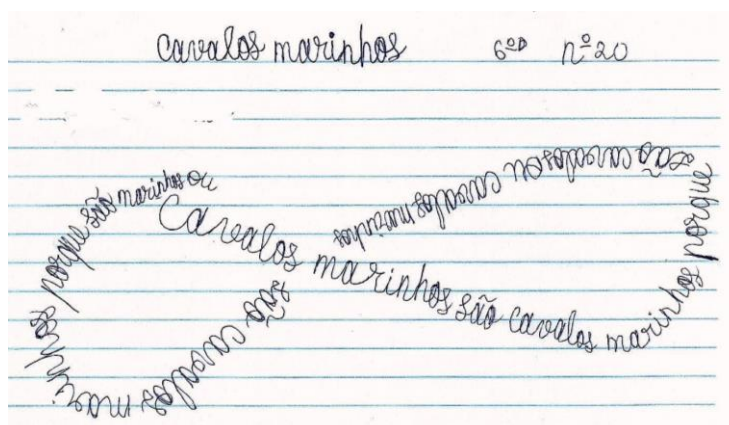 cavalos marinhos 6ºD nº 20
Cavalos marinhos são cavalos marinhos porque são cavalos ou cavalos marinhos são cavalos marinhos porque são marinhos ou